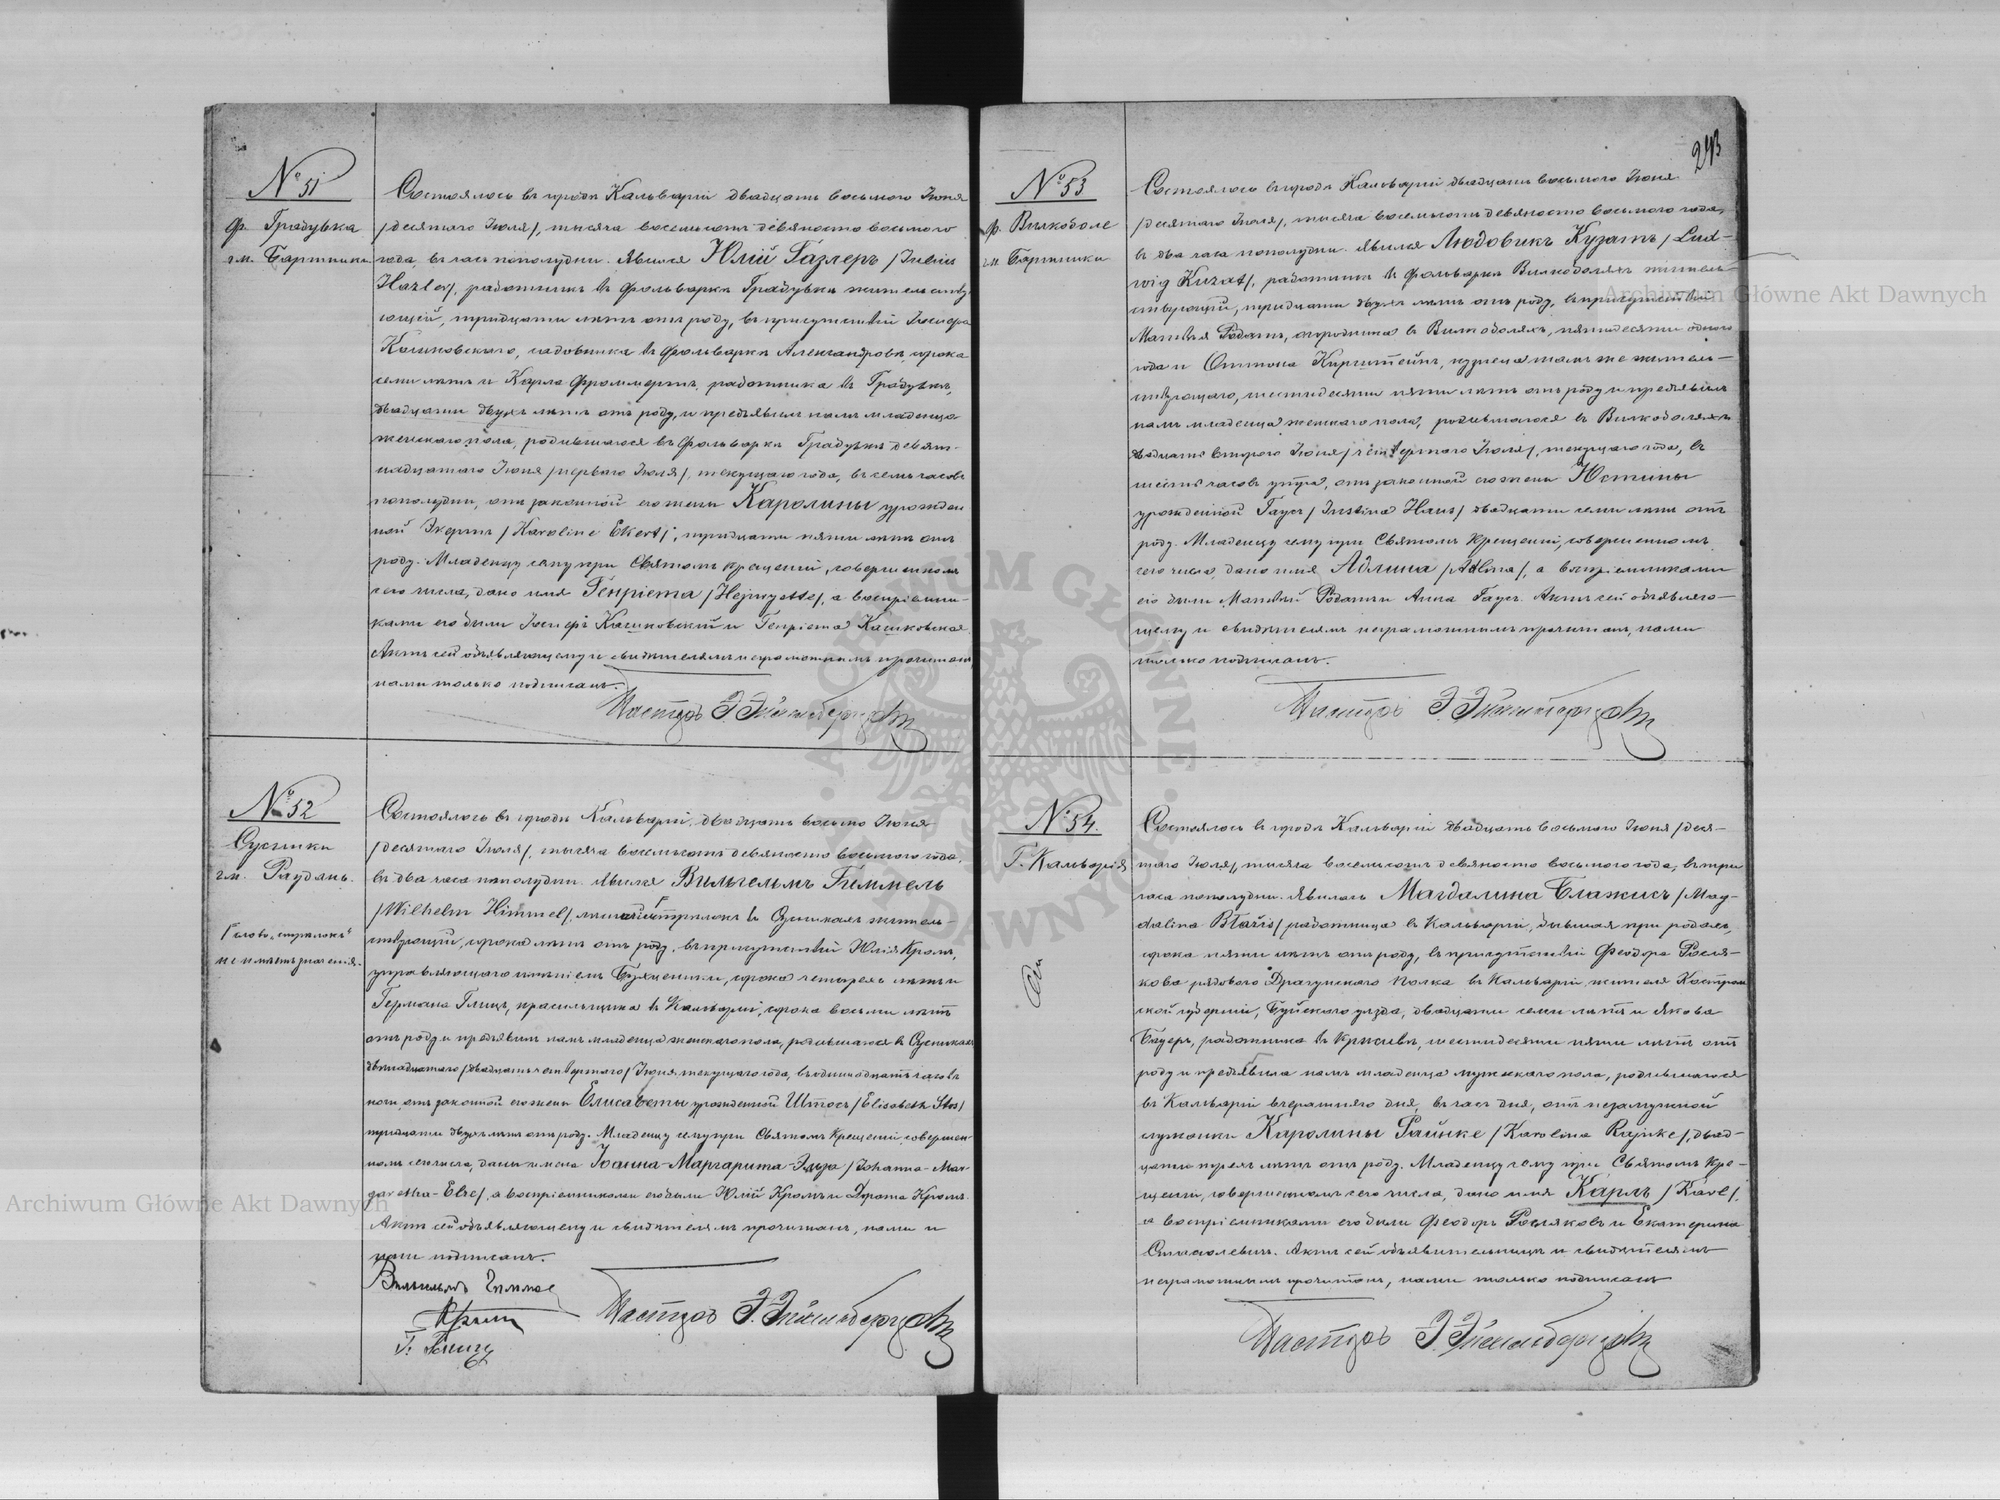 № 51
ф. Градувка
гм. Бартники
Состоялось въ городѣ Кальваріи двадцать восьмого Іюня
/десятаго Іюля/, тысяча восемьсотъ девяносто восьмого
года, въ часъ пополудни. Явился Юлій Газлеръ /Julius
Hazler/, работникъ въ фольваркѣ Градувкѣ жительству-
ющій, тридцати лѣтъ отъ роду, въ присутствіи Іосифа
Кашковскаго, садовника въ фольваркѣ Александровѣ, сорока
семи лѣтъ и Карла Фроммертъ, работника въ Градувкѣ,
двадцати двухъ лѣтъ отъ роду, и предъявилъ намъ младенца
женскаго пола, родившагося въ фольваркѣ Градувкѣ девят-
надцатаго Іюня /перваго Іюля/, текущаго года, въ семь часовъ
пополудни, отъ законной его жены Каролины урожден-
ной Экертъ /Karoline Ekert/, тридцати пяти лѣтъ отъ
роду. Младенцу сему при Святомъ Крещеніи, совершенномъ
сего числа, дано имя Генріета /Henryette/, а воспріемни-
ками его были Іосифъ Кашковскій и Генріета Кашковская.
Актъ сей объявляющему и свидѣтелямъ неграмотнымъ прочитанъ,
нами только подписанъ.
Пасторъ
№ 52
Сусники
гм. Раудань.
/Слово „стрѣлокъ"
не имѣетъ значенія.
Состоялось въ городѣ Кальваріи, двадцать восьмо Іюня
/десятаго Іюля/, тысяча восемьсотъ девяносто восьмого года,
въ два часа пополудни. Явился Вильгельмъ Гиммель
/Wilhelm Himmel/, стрѣлокъ въ Сусникахъ житель-
ствующій, сорока лѣтъ отъ роду, въ присутствіи Юлія Кромъ,
управляющаго имѣніемъ сорока четырехъ лѣтъ и
Германа Глицъ, красильщика въ Кальваріи, сорока восьми лѣтъ
отъ роду и предъявилъ намъ младенца женскаго пола, родившагося въ Сусникахъ
двѣнадцатаго /двадцать четвертаго/ Іюня текущаго года, въ одиннадцать часовъ
ночи, отъ законной его жены Елисаветы урожденной Штосъ /Elisabeth Stos/
тридцати двухъ лѣтъ отъ роду. Младенцу сему при Святомъ Крещеніи, совершен-
номъ сего числа, даны имена Іоанна-Маргарита-Эльза /Johanna-Mar-
garetha-Else/, а воспріемниками его были Юлій Кромъ и Дорота Кромъ.
Актъ сей объявляющему и свидѣтелямъ прочитанъ, нами и
ими подписанъ.
Вильгельмъ Гиммель
Пасторъ
243
№ 53
ф. Вилкоболе
гм. Бартники
Состоялось въ городѣ Кальваріи двадцать восьмого Іюня
/десятаго Іюля/, тысяча восемьсотъ девяносто восьмого года,
въ два часа пополудни. Явился Людовикъ Кузатъ /Lud-
wig Kuzat/, работникъ въ фольваркѣ Вилкоболяхъ житель-
ствующій, тридцати двухъ лѣтъ отъ роду, въ присутствіи
Матвѣя Родатъ, огородника въ Вилкоболяхъ, пятидесяти одного
года и Оттона Кирштейнъ, кузнеца тамъ же житель-
ствующаго, шестидесяти пяти лѣтъ отъ роду и предъявилъ
намъ младенца женскаго пола, родившагося въ Вилкоболяхъ
двадцать второго Іюня /четвертаго Іюля/, текущаго года, въ
шесть часовъ утра, отъ законной его жены Юстины
урожденной Гаусъ /Justina Haus/ двадцати семи лѣтъ отъ
роду. Младенцу сему при Святомъ Крещеніи, совершенномъ
сего числа, дано имя Адлина /Adlina/, а воспріемниками
его были Матвѣй Родатъ и Анна Гаусъ. Актъ сей объявляю-
щему и свидѣтелямъ неграмотнымъ прочитанъ, нами
только подписанъ.
Пасторъ
№ 54.
Г. Кальварія
Состоялось въ городѣ Кальваріи двадцать восьмого Іюня /деся-
таго Іюля/, тысяча восемьсотъ девяносто восьмого года, въ три
часа пополудни. Явилась Магдалина Блажисъ /Mag-
dalina Błažis/ работница въ Кальваріи, бывшая при родахъ,
сорока пяти лѣтъ отъ роду, въ присутствіи Феодора Рося-
кова рядового Драгунскаго Полка въ Кальваріи, жителя Костром-
ской губерніи, Буйскаго уѣзда, двадцати семи лѣтъ и Якова
Бадеръ, работника въ шестидесяти пяти лѣтъ отъ
роду и предъявила намъ младенца мужскаго пола, родившагося
въ Кальваріи вчерашняго дня, въ часъ дня, отъ незамужной
служанки Каролины Райнке /Karolina Rajnke/, двад-
цати трехъ лѣтъ отъ роду. Младенцу сему при Святомъ Кре-
щеніи, совершенномъ сего числа, дано имя Карлъ /Karl/,
а воспріемниками его были Феодоръ Росляковъ и Екатерина
Стаселевичъ. Актъ сей объявительницѣ и свидѣтелямъ
неграмотнымъ прочитанъ, нами только подписанъ
Пасторъ
Archiwum Główne Akt Dawnych
Archiwum Główne Akt Dawnych
ARCHIWUM GŁÓWNE AKT DAWNYCH